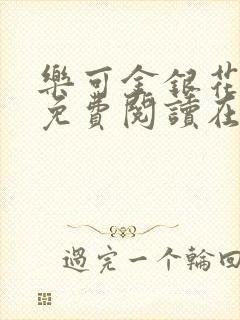 樂可金銀花
免費閱讀在
過完一个輪回